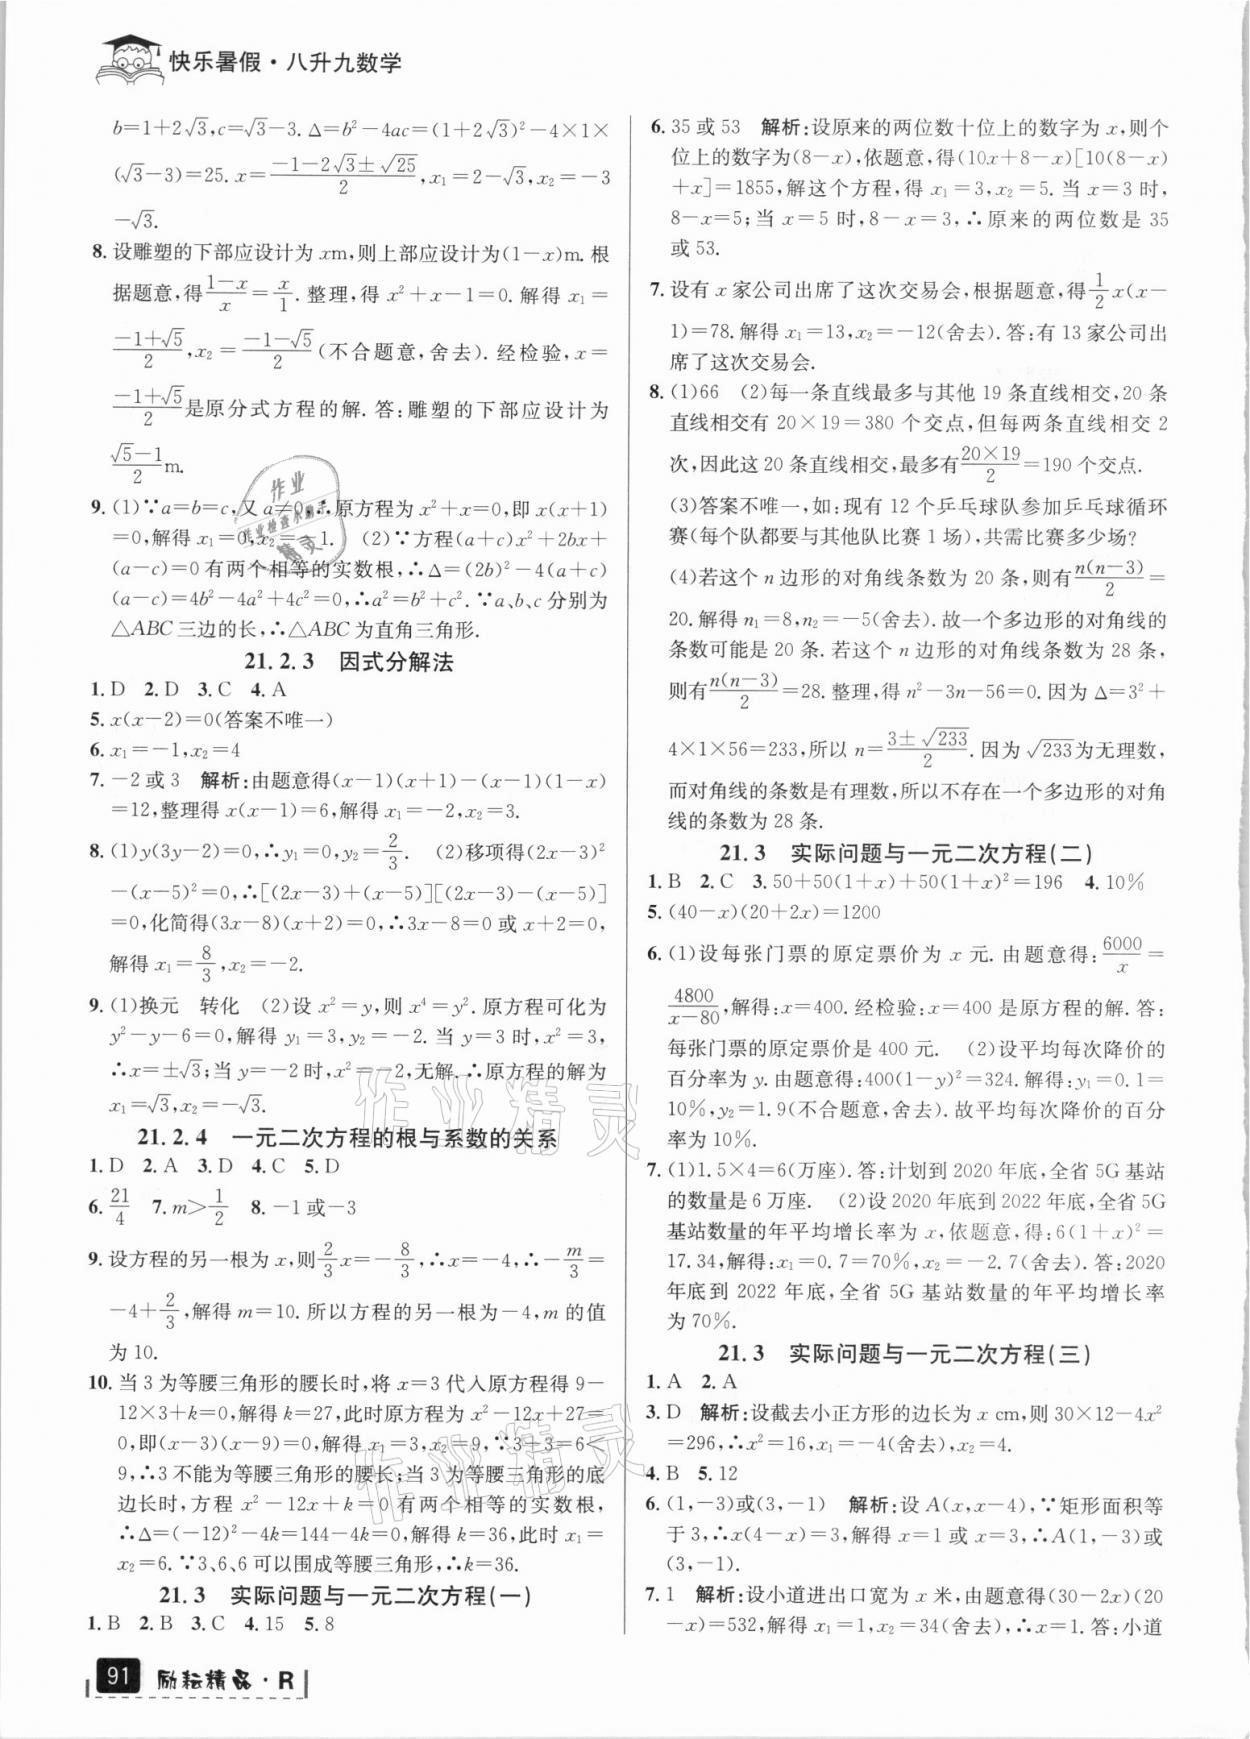 快乐暑假·八升九数学
b=1+2√3,c=√3-3. Δ=b²-4ac=(1+2√3)²-4×1×
(√3-3)=25. x=(-1-2√3±√25)/2, x₁=2-√3, x₂=-3
-√3.
8. 设雕塑的下部应设计为 xm,则上部应设计为(1-x)m. 根
据题意,得(1-x)/x=x/1. 整理,得 x²+x-1=0. 解得 x₁=
(-1+√5)/2, x₂=(-1-√5)/2(不合题意,舍去). 经检验, x=
(-1+√5)/2是原分式方程的解. 答:雕塑的下部应设计为
(√5-1)/2 m.
9. (1)∵a=b=c,又 a≠0,∴原方程为 x²+x=0,即 x(x+1)
=0,解得 x₁=0,x₂=-1. (2)∵方程(a+c)x²+2bx+
(a-c)=0 有两个相等的实数根,∴Δ=(2b)²-4(a+c)
(a-c)=4b²-4a²+4c²=0,∴a²=b²+c². ∵a、b、c 分别为
△ABC 三边的长,∴△ABC 为直角三角形.
21.2.3 因式分解法
1. D 2. D 3. C 4. A
5. x(x-2)=0(答案不唯一)
6. x₁=-1,x₂=4
7. -2 或 3 解析:由题意得(x-1)(x+1)-(x-1)(1-x)
=12,整理得 x(x-1)=6,解得 x₁=-2,x₂=3.
8. (1)y(3y-2)=0,∴y₁=0,y₂=2/3. (2)移项得(2x-3)²
-(x-5)²=0,∴[(2x-3)+(x-5)][(2x-3)-(x-5)]
=0,化简得(3x-8)(x+2)=0,∴3x-8=0 或 x+2=0,
解得 x₁=8/3,x₂=-2.
9. (1)换元 转化 (2)设 x²=y,则 x⁴=y². 原方程可化为
y²-y-6=0,解得 y₁=3,y₂=-2. 当 y=3 时,x²=3,
∴x=±√3;当 y=-2 时,x²=-2,无解. ∴原方程的解为
x₁=√3,x₂=-√3.
21.2.4 一元二次方程的根与系数的关系
1. D 2. A 3. D 4. C 5. D
6. 21/4 7. m>1/2 8. -1 或-3
9. 设方程的另一根为 x,则2/3x=-8/3,∴x=-4,∴-m/3=
-4+2/3,解得 m=10. 所以方程的另一根为-4,m 的值
为 10.
10. 当 3 为等腰三角形的腰长时,将 x=3 代入原方程得 9-
12×3+k=0,解得 k=27,此时原方程为 x²-12x+27=
0,即(x-3)(x-9)=0,解得 x₁=3,x₂=9,∵3+3=6<
9,∴3 不能为等腰三角形的腰长;当 3 为等腰三角形的底
边长时,方程 x²-12x+k=0 有两个相等的实数根,
∴Δ=(-12)²-4k=144-4k=0,解得 k=36,此时 x₁=
x₂=6. ∵3、6、6 可以围成等腰三角形,∴k=36.
21.3 实际问题与一元二次方程(一)
1. B 2. B 3. C 4. 15 5. 8
6. 35 或 53 解析:设原来的两位数十位上的数字为 x,则个
位上的数字为(8-x),依题意,得(10x+8-x)[10(8-x)
+x]=1855,解这个方程,得 x₁=3,x₂=5. 当 x=3 时,
8-x=5;当 x=5 时,8-x=3,∴原来的两位数是 35
或 53.
7. 设有 x 家公司出席了这次交易会,根据题意,得1/2x(x-
1)=78. 解得 x₁=13,x₂=-12(舍去). 答:有 13 家公司出
席了这次交易会.
8. (1)66 (2)每一条直线最多与其他 19 条直线相交,20 条
直线相交有 20×19=380 个交点,但每两条直线相交 2
次,因此这 20 条直线相交,最多有(20×19)/2=190 个交点.
(3)答案不唯一,如:现有 12 个乒乓球队参加乒乓球循环
赛(每个队都要与其他队比赛 1 场),共需比赛多少场?
(4)若这个 n 边形的对角线条数为 20 条,则有n(n-3)/2=
20. 解得 n₁=8,n₂=-5(舍去). 故一个多边形的对角线的
条数可能是 20 条. 若这个 n 边形的对角线条数为 28 条,
则有n(n-3)/2=28. 整理,得 n²-3n-56=0. 因为 Δ=3²+
4×1×56=233,所以 n=(3±√233)/2. 因为√233为无理数,
而对角线的条数是有理数,所以不存在一个多边形的对角
线的条数为 28 条.
21.3 实际问题与一元二次方程(二)
1. B 2. C 3. 50+50(1+x)+50(1+x)²=196 4. 10%
5. (40-x)(20+2x)=1200
6. (1)设每张门票的原定票价为 x 元. 由题意得:6000/x=
4800/(x-80),解得:x=400. 经检验:x=400 是原方程的解. 答:
每张门票的原定票价是 400 元. (2)设平均每次降价的
百分率为 y. 由题意得:400(1-y)²=324. 解得:y₁=0.1=
10%,y₂=1.9(不合题意,舍去). 故平均每次降价的百分
率为 10%.
7. (1)1.5×4=6(万座). 答:计划到 2020 年底,全省 5G 基站
的数量是 6 万座. (2)设 2020 年底到 2022 年底,全省 5G
基站数量的年平均增长率为 x,依题意,得:6(1+x)²=
17.34,解得:x₁=0.7=70%,x₂=-2.7(舍去). 答:2020
年底到 2022 年底,全省 5G 基站数量的年平均增长率
为 70%.
21.3 实际问题与一元二次方程(三)
1. A 2. A
3. D 解析:设截去小正方形的边长为 x cm,则 30×12-4x²
=296,∴x²=16,x₁=-4(舍去),x₂=4.
4. B 5. 12
6. (1,-3)或(3,-1) 解析:设 A(x,x-4),∵矩形面积等
于 3,∴x(4-x)=3,解得 x=1 或 x=3,∴A(1,-3)或
(3,-1).
7. 1 解析:设小道进出口宽为 x 米,由题意得(30-2x)(20
-x)=532,解得 x₁=1,x₂=34(舍去),∴x=1. 答:小道
91 励耘精品·R
作业精灵
作业精灵